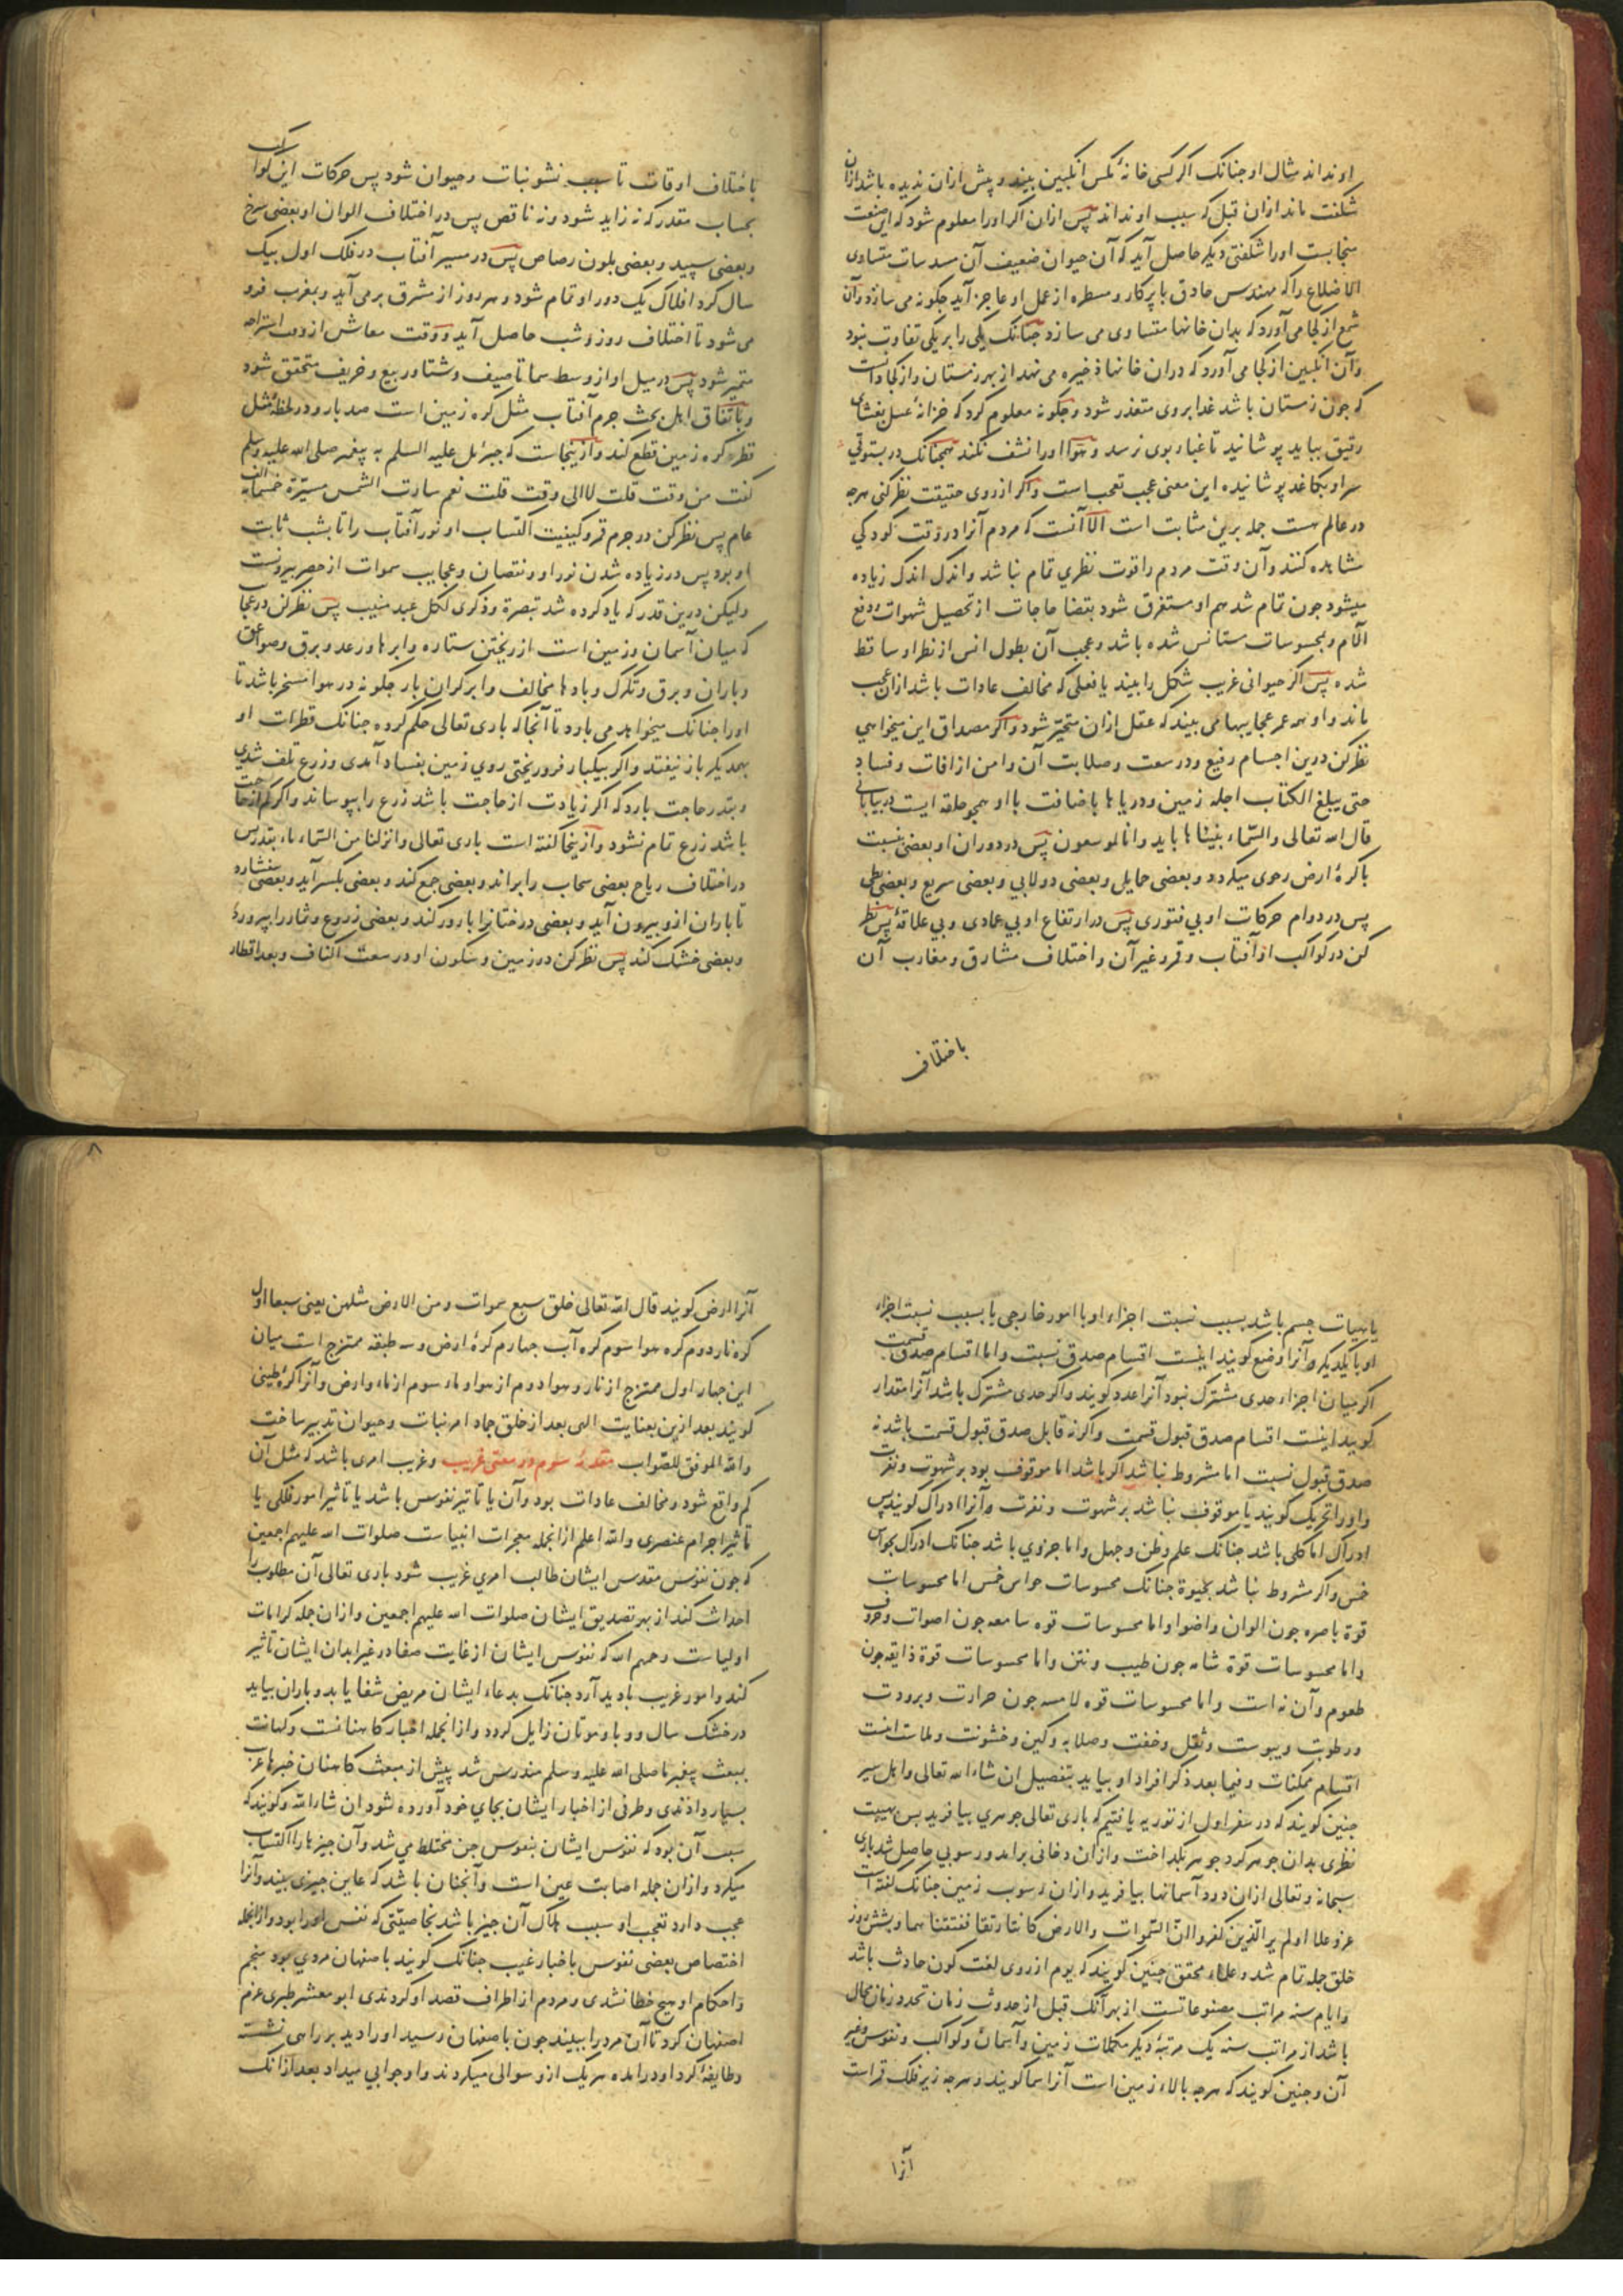 او نداند مثال او جنانک اکر کسی خانهٔ مکس انکبین بیند و پیش ازان ندیده باشد ازان
شکفت ماند ازان قبل که سبب او نداند پس ازان اکر اورا معلوم شود که این صنعت
اورا شکفتی دیکر حاصل آید که آن حیوان ضعیف آن مسدسات متساوی
الاضلاع را که مهندس حاذق با پرکار و مسطره از عمل او عاجز آید جکونه می سازد و آن
شمع از کجا می آورد که بدان خانها متساوی می سازد جنانک یکی را بر یکی تفاوت نبود
و آن انکبین از کجا می آورد که دران خانها ذخیره می نهد از بهر زمستان و از کجا دانست
که جون زمستان باشد غدا بر وی متعذر شود و جکونه معلوم کرد که خزانهٔ عسل بغشای
رقیق بباید پوشانید تا غبار بوی نرسد و هوا اورا نشف نکند همجنانک در بستوقی
سر او بکاغد پوشانیده این معنی عجب تعجب است و اکر از روی حقیقت نظر کنی هرجه
در عالم هست جمله برین مثابت است الا آنست که مردم آنرا در وقت کودکی
مشاهده کنند و آن وقت مردم را قوت نظری تمام نباشد و اندک اندک زیاده
میشود جون تمام شد هم او مستغرق شود بقضا حاجات از تحصیل شهوات و دفع
آلام و بمحسوسات مستانس شده باشد و عجب آن بطول انس از نظر او ساقط
شده پس اکر حیوانی غریب شکل را بیند یا فعلی که مخالف عادات باشد ازان عجب
ماند و او همه عمر عجایبها می بیند که عقل ازان متحیر شود و اکر مصداق این میخواهی
نظر کن درین اجسام رفیع و در سعت و صلابت آن و امن از افات و فساد
حتی یبلغ الکتاب اجله زمین و دریاها باضافت با او همجو حلقه ایست در بیابانی
قال الله تعالی والسماء بنیناها باید وانا لموسعون پس در دوران او بعضی نسبت
با کرهٔ ارض رحوی میکردد و بعضی حمایل و بعضی دولابی و بعضی سریع و بعضی بطی
پس در دوام حرکات او بی فتوری پس در ارتفاع او بی عمادی و بی علاقهٔ پس نظر
کن در کواکب از آفتاب و قمر و غیر آن و اختلاف مشارق و مغارب آن
باختلاف
باختلاف اوقات تا سبب نشو نبات و حیوان شود پس حرکات این کواکب
بحساب مقدر که نه زاید شود و نه ناقص پس در اختلاف الوان او بعضی سرخ
و بعضی سپید و بعضی بلون رصاص پس در مسیر آفتاب در فلک اول بیک
سال کرد افلاک یک دور او تمام شود و هر روز از مشرق بر می آید و بمغرب فرو
می شود تا اختلاف روز و شب حاصل آید و وقت معاش از وقت استراحه
متمیز شود پس در میل او از وسط سما تا صیف و شتا و ربیع و خریف متحقق شود
و باتفاق اهل بحث جرم آفتاب مثل کره زمین است صد بار و در لحظهٔ مثل
قطر کره زمین قطع کند و ازینجاست که جبرئل علیه السلم به پیغمبر صلی الله علیه وسلم
کفت من وقت قلت لا الی وقت قلت نعم سارت الشمس مسیرة خمسمایه
عام پس نظر کن در جرم قمر و کیفیت اکتساب او نور آفتاب را تا بشب ثابت
او بود پس در زیاده شدن نور او و نقصان و عجایب سموات از حصر بیرونست
ولیکن درین قدر که یاد کرده شد تبصرة وذکری لکل عبد منیب پس نظر کن در عجا
که میان آسمان و زمین است از ریختن ستاره و ابرها و رعد و برق و صواعق
و باران و برق و تکرک و بادها مخالف و ابر کران بار جکونه در هوا مسخر باشد تا
اورا جنانک میخواهد می بارد تا آنجا که باری تعالی حکم کرده جنانک قطرات او
بهمدیکر باز نیفتد و اکر بیکبار فرو ریختی روی زمین بفساد آمدی و زرع تلف شدی
و بقدر حاجت بارد که اکر زیادت از حاجت باشد زرع را بپوساند و اکر کم از حاجت
باشد زرع تمام نشود و ازینجا کفته است باری تعالی وانزلنا من السماء ماء بقدر پس
در اختلاف ریاح بعضی سحاب را براند و بعضی جمع کند و بعضی بکسر آید و بعضی بفشارد
تا باران ازو بیرون آید و بعضی درختانرا بارور کند و بعضی زروع و ثمار را بپرورد
و بعضی خشک کند پس نظر کن در زمین و سکون او و در سعت اکناف و بعد اقطار
۸
یا هیات جسم باشد بسبب نسبت اجزاء او با امور خارجی یا بسبب نسبت اجزاء
او با یکدیکر و آنرا وضع کویند اینست اقسام صدق نسبت و اما اقسام صدق قسمت
اکر میان اجزاء حدی مشترک نبود آنرا عدد کویند و اکر حدی مشترک باشد آنرا مقدار
کویند اینست اقسام صدق قبول قسمت و اکر نه قابل صدق قبول قسمت باشد نه
صدق قبول نسبت اما مشروط نباشد اکر باشد اما موقوف بود بر شهوت و نفرت
و اورا تحریک کویند یا موقوف نباشد بر شهوت و نفرت و آنرا ادراک کویند پس
ادراک اما کلی باشد جنانک علم و ظن و جهل و اما جزوی باشد جنانک ادراک بحواس
خمس و اکر مشروط نباشد بحیوة جنانک محسوسات حواس خمس اما محسوسات
قوة باصره جون الوان و اضوا و اما محسوسات قوه سامعه جون اصوات و حروف
و اما محسوسات قوة شامه جون طیب و نتن و اما محسوسات قوة ذایقه جون
طعوم و آن نه است و اما محسوسات قوه لامسه جون حرارت و برودت
و رطوبت و یبوست و ثقل و خفت و صلابه و لین و خشونت و ملاست اینست
اقسام ممکنات و فیما بعد ذکر افراد او بیاید بتفصیل ان شاء الله تعالی و اهل سیر
جنین کویند که در سفر اول از توریه یافتیم که باری تعالی جوهری بیافرید پس بهیبت
نظری بدان جوهر کرد جوهر بکداخت و ازان دخانی برامد و رسوبی حاصل شد باری
سبحانه و تعالی ازان دود آسمانها بیافرید و ازان رسوب زمین جنانک کفته است
عز و علا اولم یر الذین کفروا ان السموات والارض کانتا رتقا ففتقناهما و بشش روز
خلق جمله تمام شد و علماء محقق جنین کویند که یوم از روی لغت کون حادث باشد
و ایام سته مراتب مصنوعاتست از بهر آنک قبل از حدوث زمان تحدد زمان محال
باشد از مراتب سته یک مرتبهٔ دیکر مکملات زمین و آسمان و کواکب و نفوس و غیر
آن و جنین کویند که هرجه بالاء زمین است آنرا سما کویند و هرجه زیر فلک قمر است
آنرا
آنرا ارض کویند قال الله تعالی خلق سبع سموات ومن الارض مثلهن یعنی سبعا اول
کره نار دوم کره هوا سوم کره آب جهارم کرهٔ ارض و سه طبقه ممتزج است میان
این جهار اول ممتزج از نار و هوا دوم از هوا و ماء سوم از ماء و ارض و آنرا کرهٔ طینی
کویند بعد ازین بعنایت الهی بعد از خلق جماد امر نبات و حیوان تدبیر ساخت
والله الموفق للصواب مقدمهٔ سوم در معنی غریب و غریب امری باشد که مثل آن
کم واقع شود و مخالف عادات بود و آن یا تاثیر نفوس باشد یا تاثیر امور فلکی یا
تاثیر اجرام عنصری والله اعلم ازانجمله معجزات انبیاست صلوات الله علیهم اجمعین
که جون نفوس مقدس ایشان طالب امری غریب شود باری تعالی آن مطلوب را
احداث کند از بهر تصدیق ایشان صلوات الله علیهم اجمعین و ازان جمله کرامات
اولیاست رحمهم الله که نفوس ایشان از غایت صفا در غیر ابدان ایشان تاثیر
کند و امور غریب بادید آرد جنانک بدعاء ایشان مریض شفا یابد و باران بیاید
در خشک سال و وبا و موتان زایل کردد و ازانجمله اخبار کاهنانست و کهانت
ببعث پیغمبر ما صلی الله علیه وسلم مندرس شد پیش از مبعث کاهنان خبرها عرب
بسیار دادندی و طرفی از اخبار ایشان بجای خود آورده شود ان شاء الله و کویند که
سبب آن بود که نفوس ایشان بنفوس جن مختلط می شد و آن جیزها را اکتساب
میکرد و ازان جمله اصابت عین است و آنجنان باشد که عاین جیزی بیند و آنرا
عجب دارد تعجب او سبب هلاک آن جیز باشد بخاصیتی که نفس اورا بود و ازانجمله
اختصاص بعضی نفوس باخبار غیب جنانک کویند باصفهان مردی بود منجم
و احکام او هیج خطا نشدی و مردم از اطراف قصد او کردندی ابو معشر طبری عزم
اصفهان کرد تا آن مرد را ببیند جون باصفهان رسید اورا دید بر راهی نشسته
و طایفهٔ کرد او درامده هر یک ازو سوالی میکردند و او جوابی میداد بعد ازانک